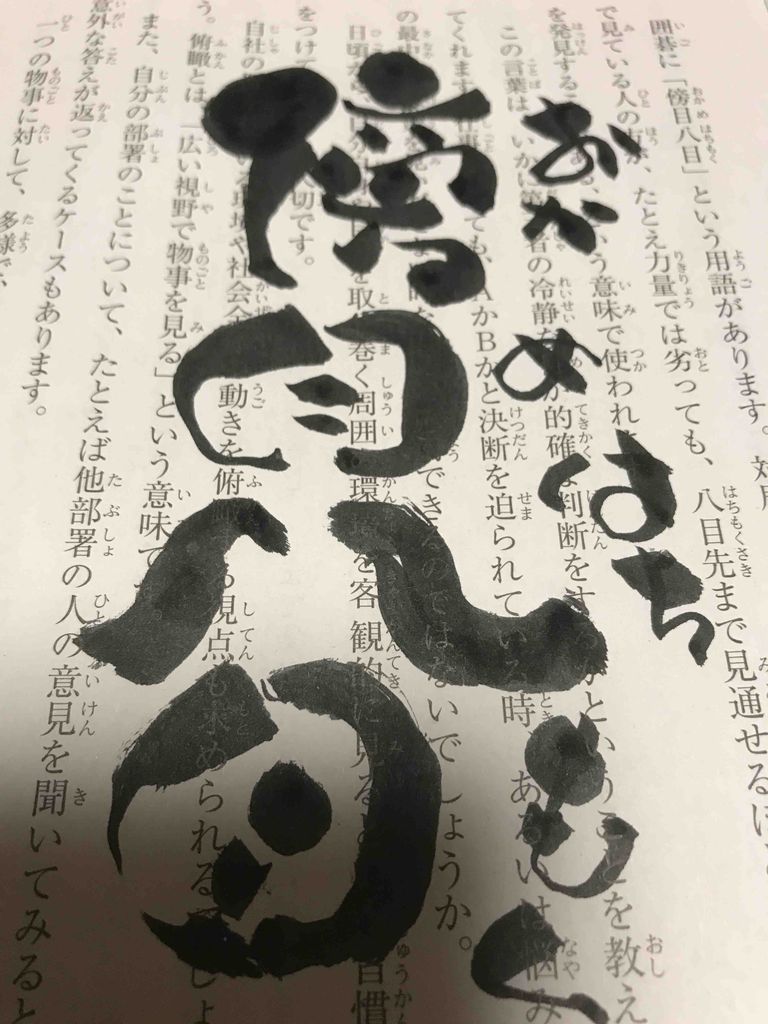 おかめはちもく
傍目八目
囲碁に「傍目八目」という用語があります。対局
で見ている人の方が、たとえ力量では劣っても、八目先まで見通せるほど
を発見する いう意味で使われ
この言葉は、いかに第 者の冷静 が的確な判断をするかということを教え
てくれます ても、AかBかと決断を迫られている時、あるいは悩み
の最中
できるのではないでしょうか。
日頃から を取り巻く周囲 環境を客観的に見る 習慣
をつけて 切です。
自社の 現場や社会全 動きを俯瞰する視点も求められるでしょ
う。俯瞰とは、「広い視野で物事を見る」という意味で
また、自分の部署のことについて、たとえば他部署の人の意見を聞いてみると
意外な答えが返ってくるケースもあります。
一つの物事に対して、多様で、